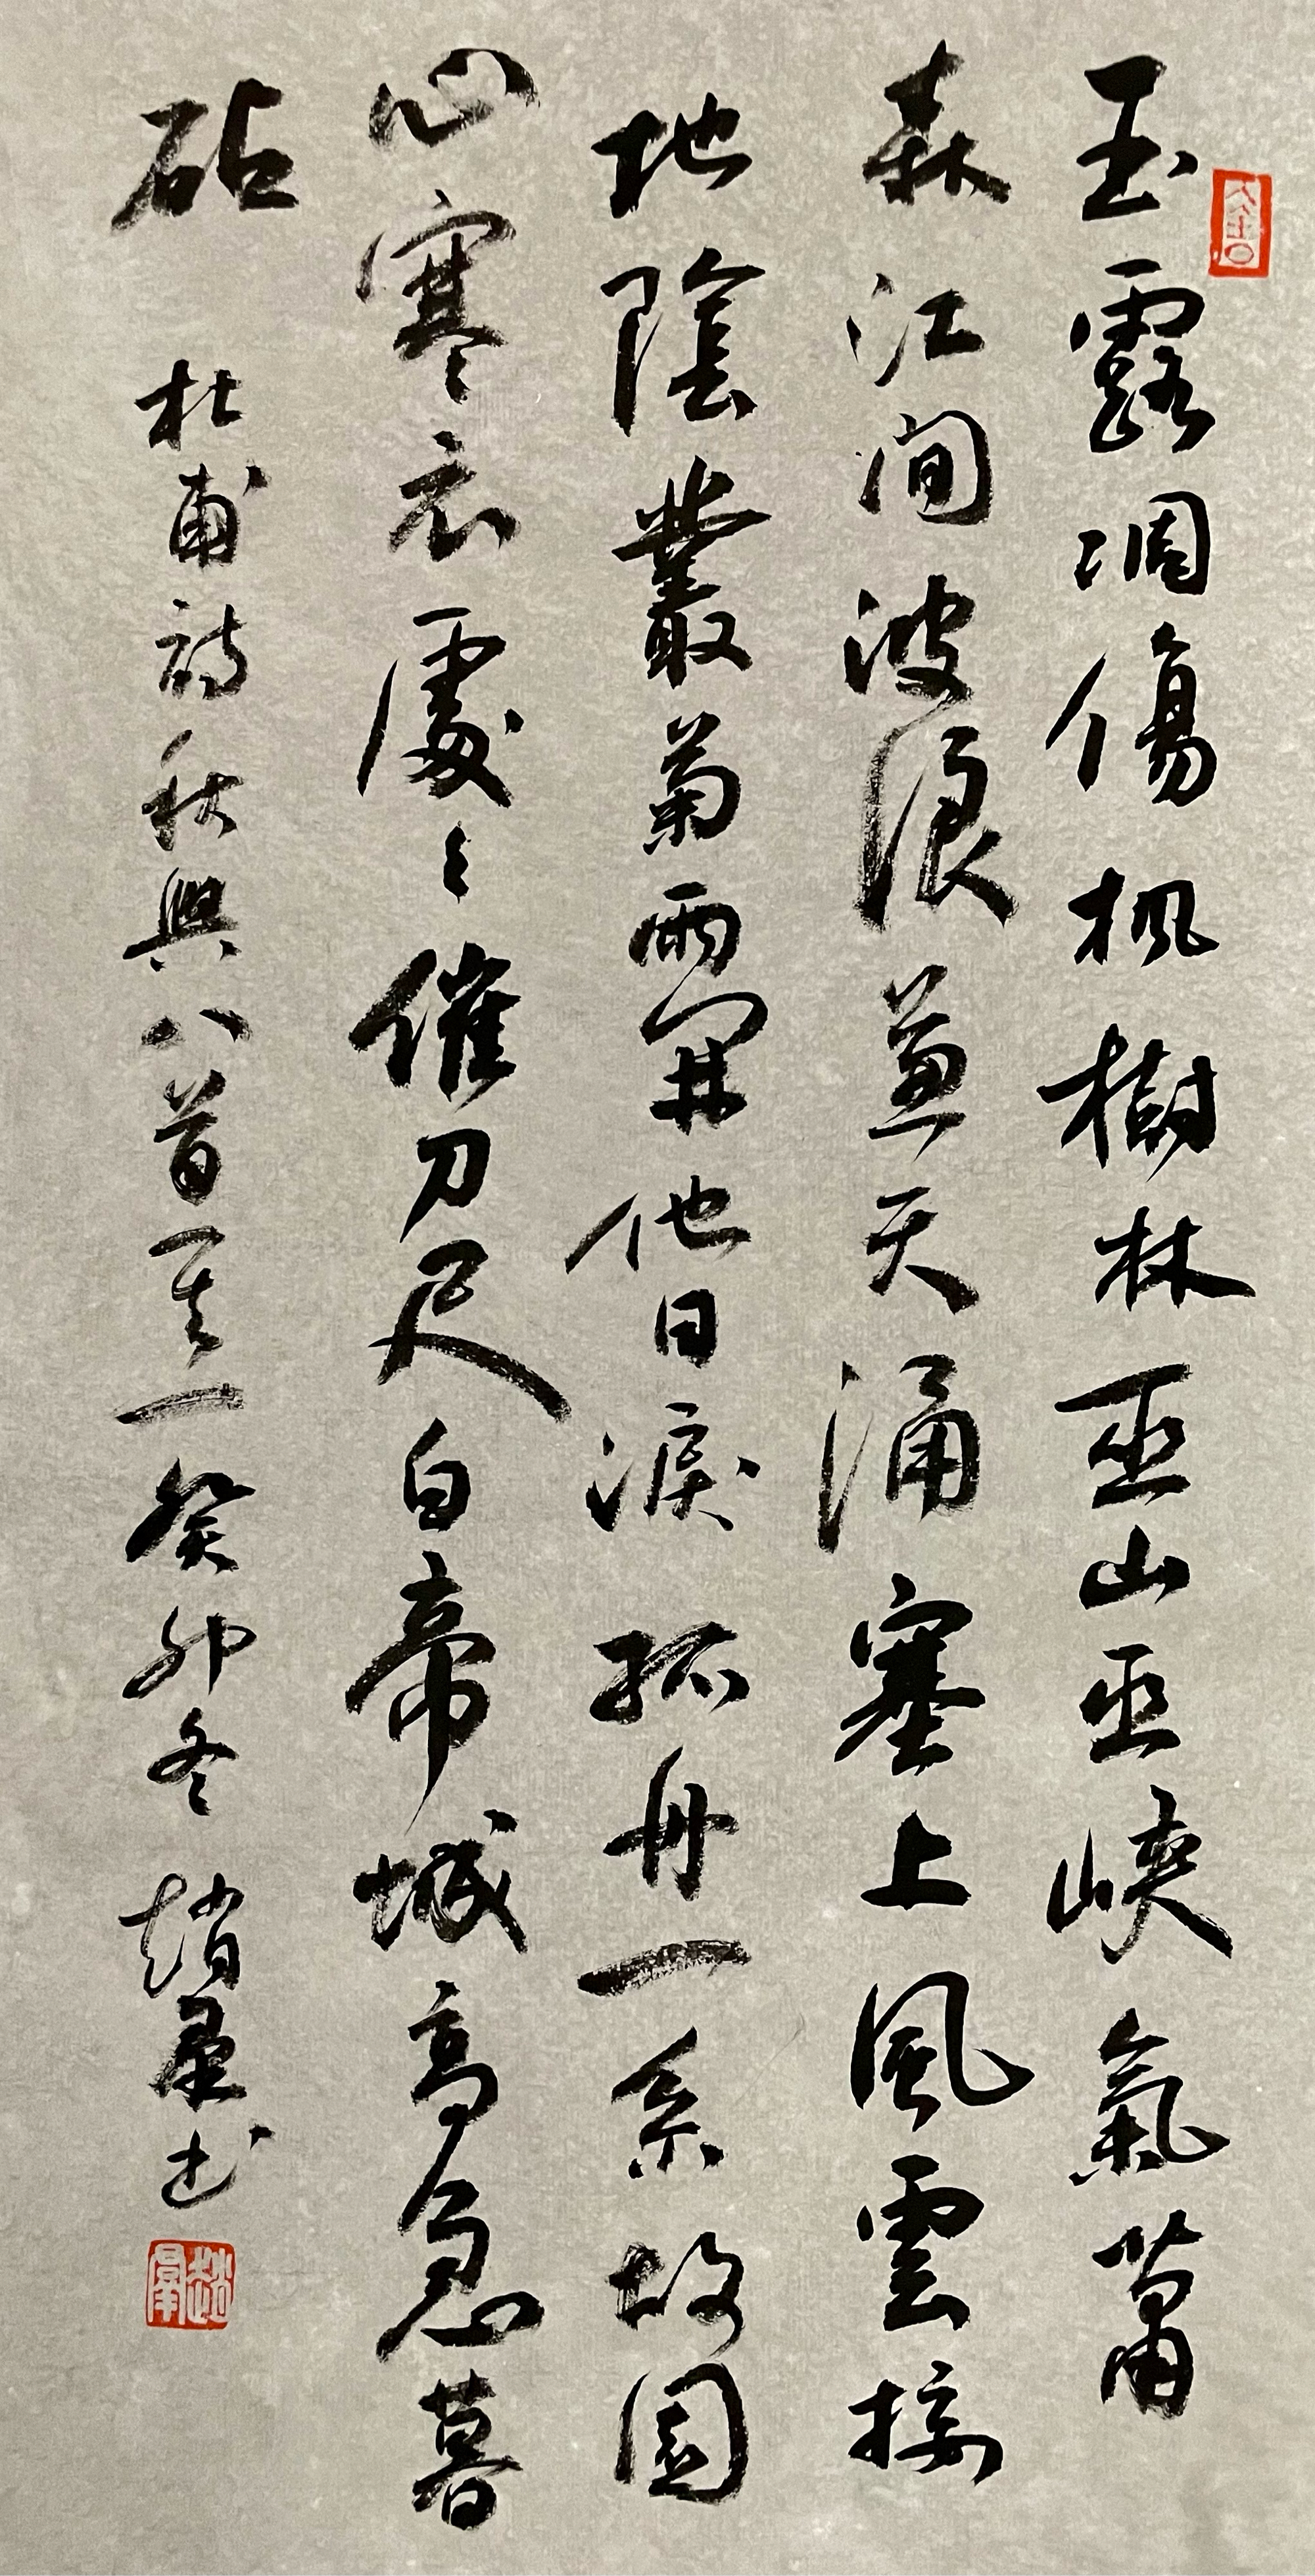 玉露凋傷楓樹林巫山巫峽氣蕭
森江間波浪兼天涌塞上風雲接
地陰叢菊兩開他日淚孤舟一系故園
心寒衣處々催刀尺白帝城高急暮
砧
杜甫詩秋興八首之其一癸卯冬趙墨书